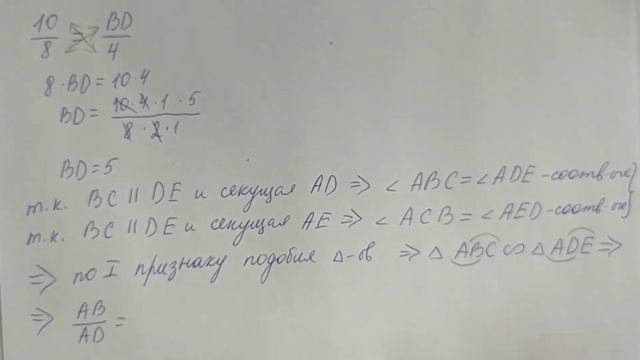 10/8 = BD/4
8·BD = 10·4
BD = 10·4·1·5/8·2·1
BD = 5
т.к. BC || DE и секущая AD ⇒ ∠ABC = ∠ADE - соотв-ые}
т.к. BC || DE и секущая AE ⇒ ∠ACB = ∠AED - соотв-ые}
⇒ по I признаку подобия Δ-ов ⇒ ΔABC ∽ ΔADE ⇒
⇒ AB/AD =